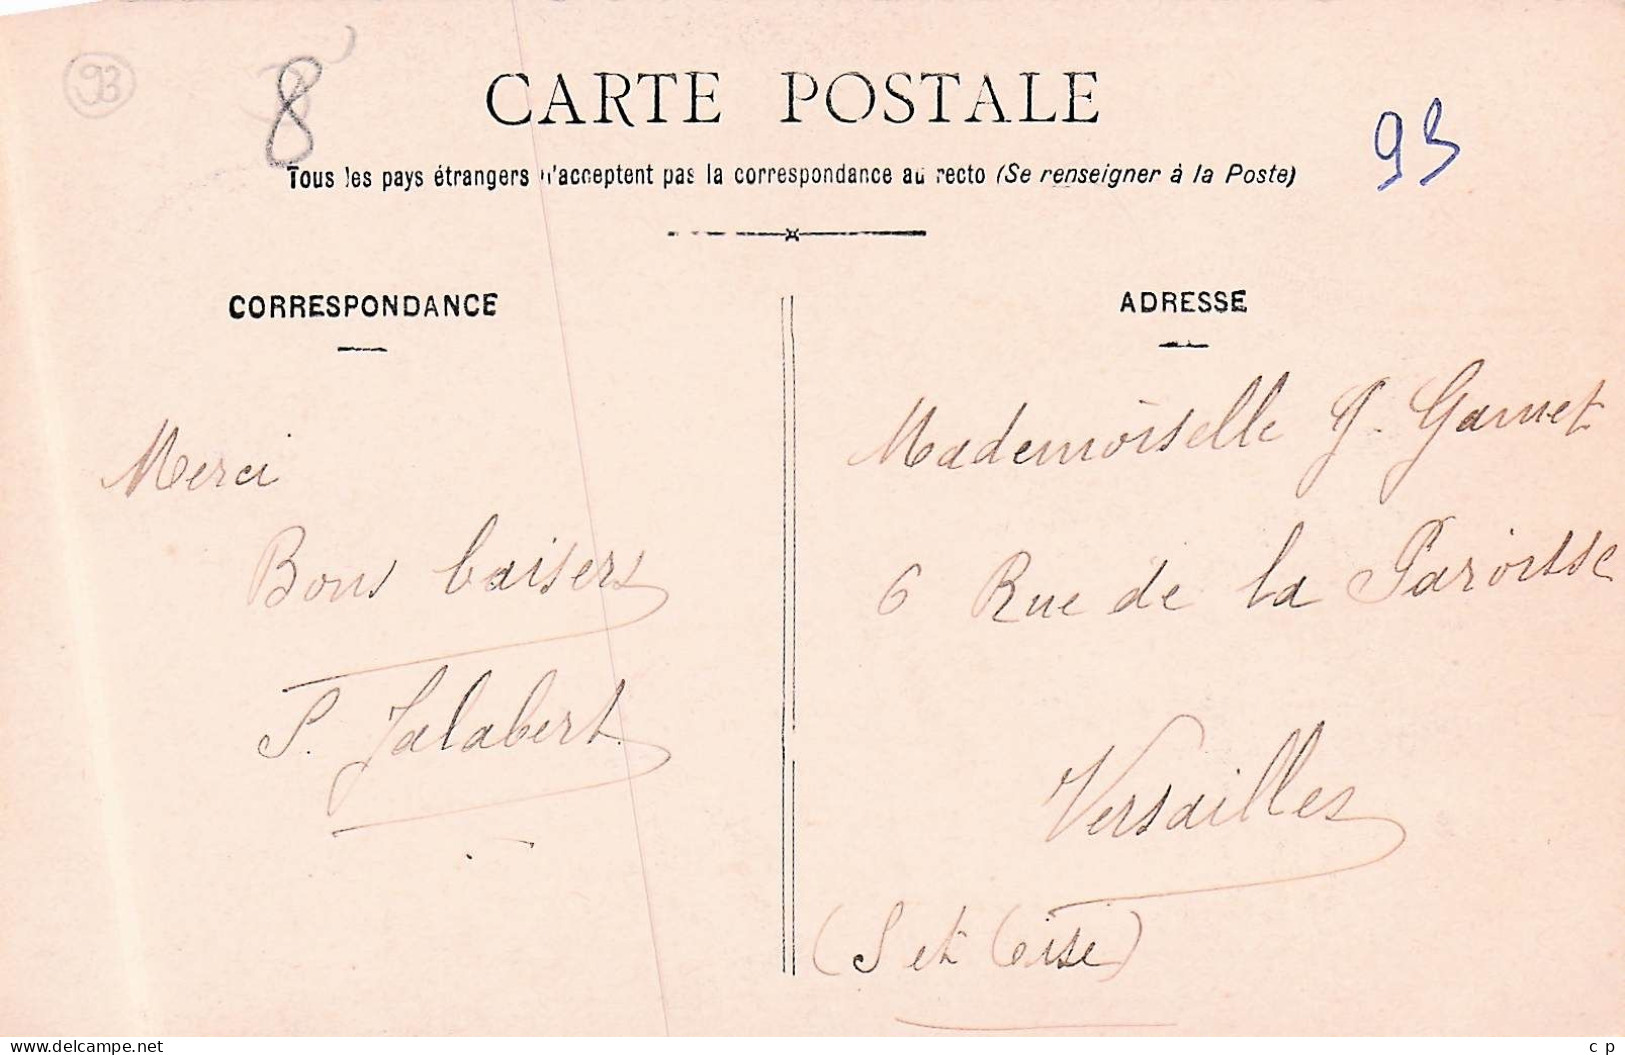 93
8
CARTE POSTALE
93
Tous les pays étrangers n'acceptent pas la correspondance au recto (Se renseigner à la Poste)
CORRESPONDANCE
Merci
Bons baisers
P. Jalabert
ADRESSE
Mademoiselle G. Garnet
6 Rue de la Paroisse
Versailles
(S et Oise)
delcampe.net
c p